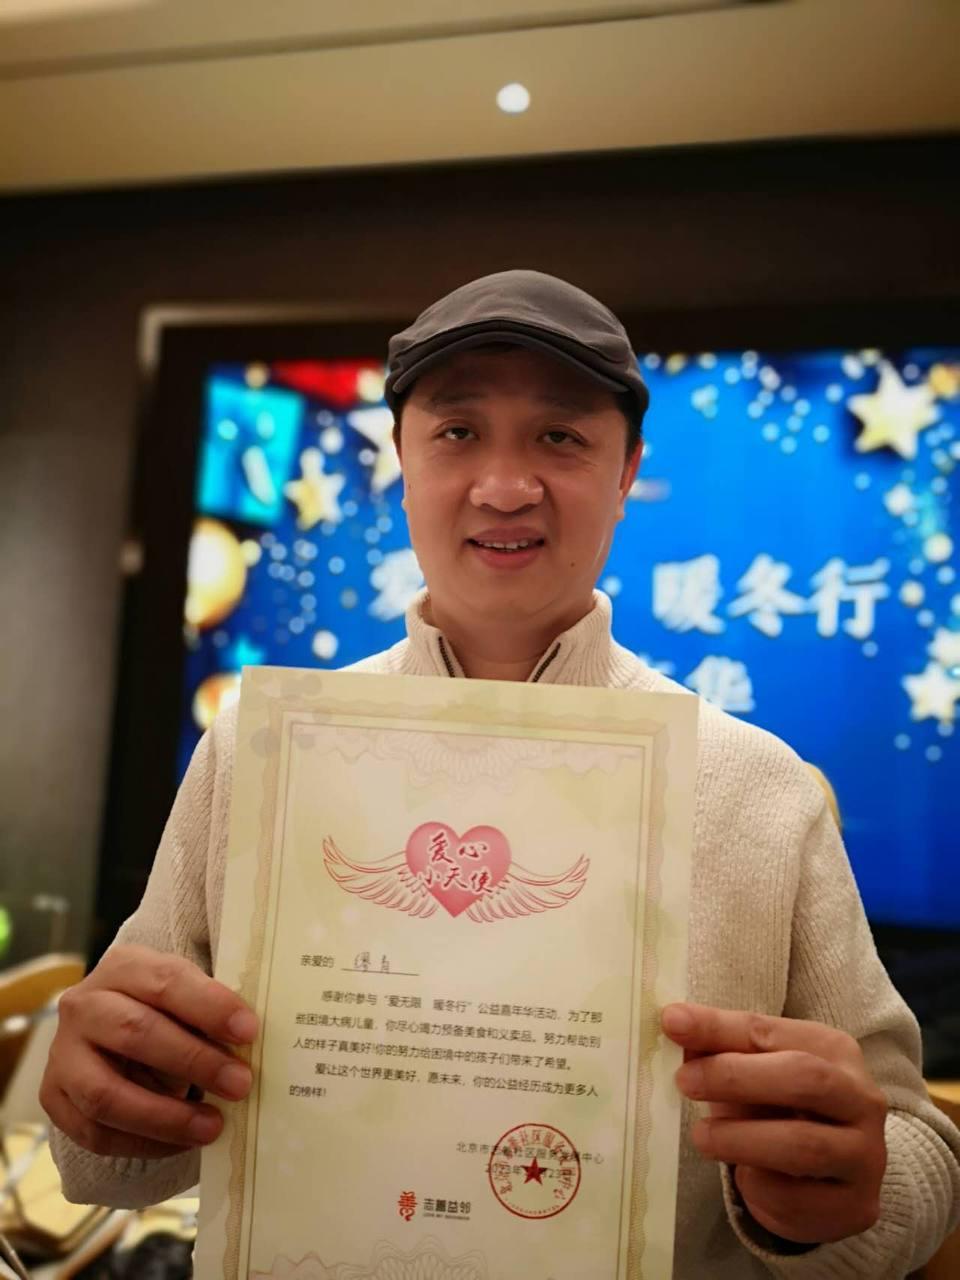 爱 暖冬行
华
爱心
小天使
亲爱的
感谢你参与“爱无限 暖冬行”公益嘉年华活动，为了那
些困境大病儿童，你尽心竭力预备美食和义卖品。努力帮助别
人的样子真美好!你的努力给困境中的孩子们带来了希望。
爱让这个世界更美好，愿未来，你的公益经历成为更多人
的榜样!
北京市志善社区服务发展中心
志善益邻
LOVE MY NEIGHBOR